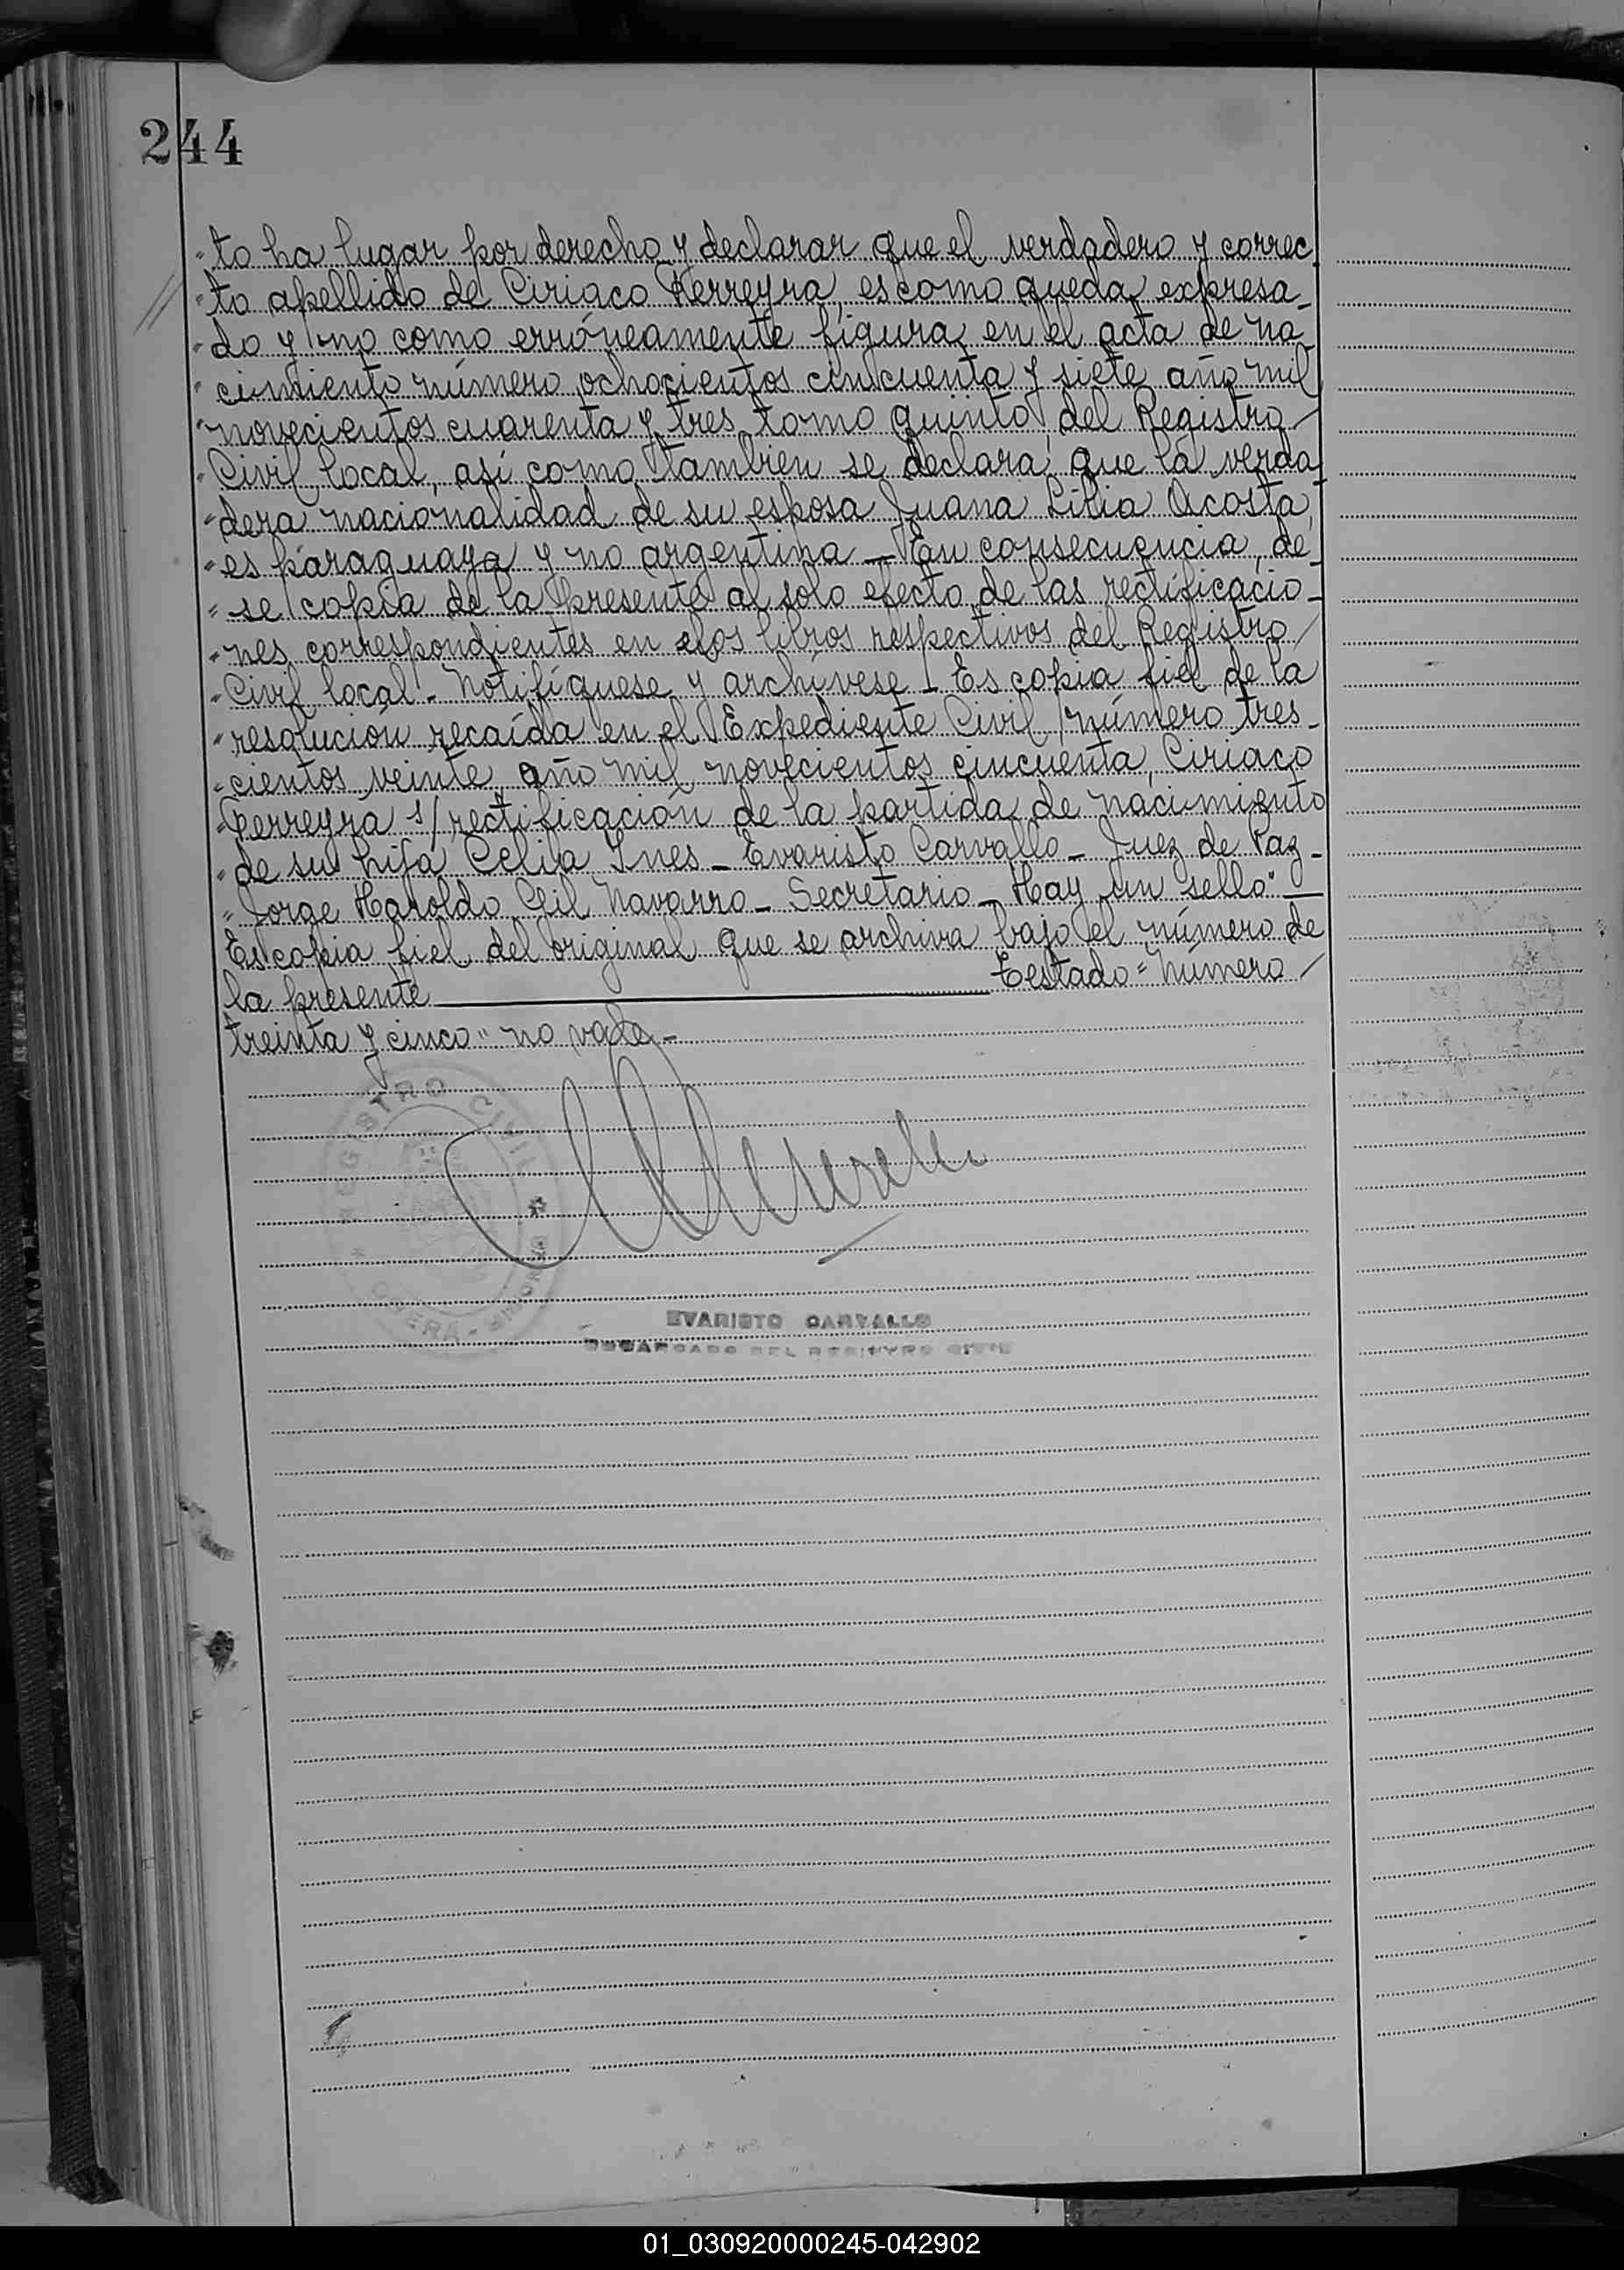 244
"to ha lugar por derecho y declarar que el verdadero y correc
"to apellido de Ciriaco Ferreyra, es como queda expresa-
"do y no como erróneamente figura en el acta de na-
"cimiento número ochocientos cincuenta y siete año mil
"novecientos cuarenta y tres tomo quinto del Registro /
"Civil local, así como tambien se declara que la verda
"dera nacionalidad de su esposa Juana Lilia Acosta,
"es paraguaya y no argentina _ En consecuencia, de-
"se copia de la presente al solo efecto de las rectificacio-
"nes correspondientes en los libros respectivos del Registro /
"Civil local - Notifíquese y archívese - Es copia fiel de la
"resolución recaída en el Expediente Civil número tres-
"cientos veinte, año mil novecientos cincuenta, Ciriaco
"Ferreyra s/ rectificación de la partida de nacimiento
"de su hija Celia Ynes - Evaristo Carvallo - Juez de Paz -
"Jorge Haroldo Gil Navarro - Secretario - Hay un sello" —
Es copia fiel del original que se archiva bajo el número de
la presente ——— Testado = número /
treinta y cinco" no vale -
REGISTRO CIVIL
OBERA - MISIONES
EVARISTO CARVALLO
ENCARGADO DEL REGISTRO CIVIL
01_030920000245-042902